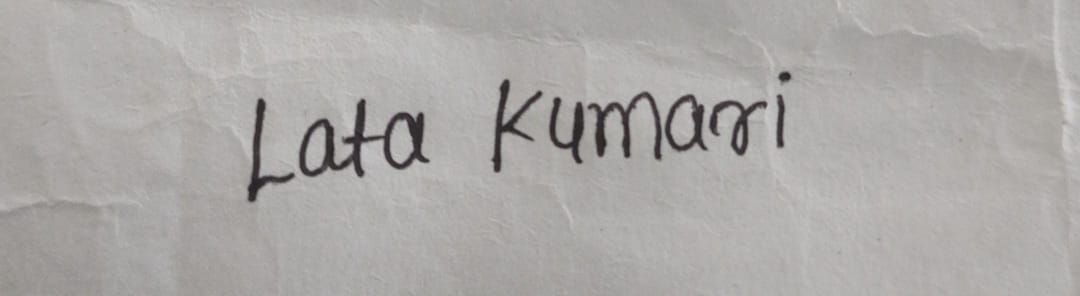 Lata Kumari